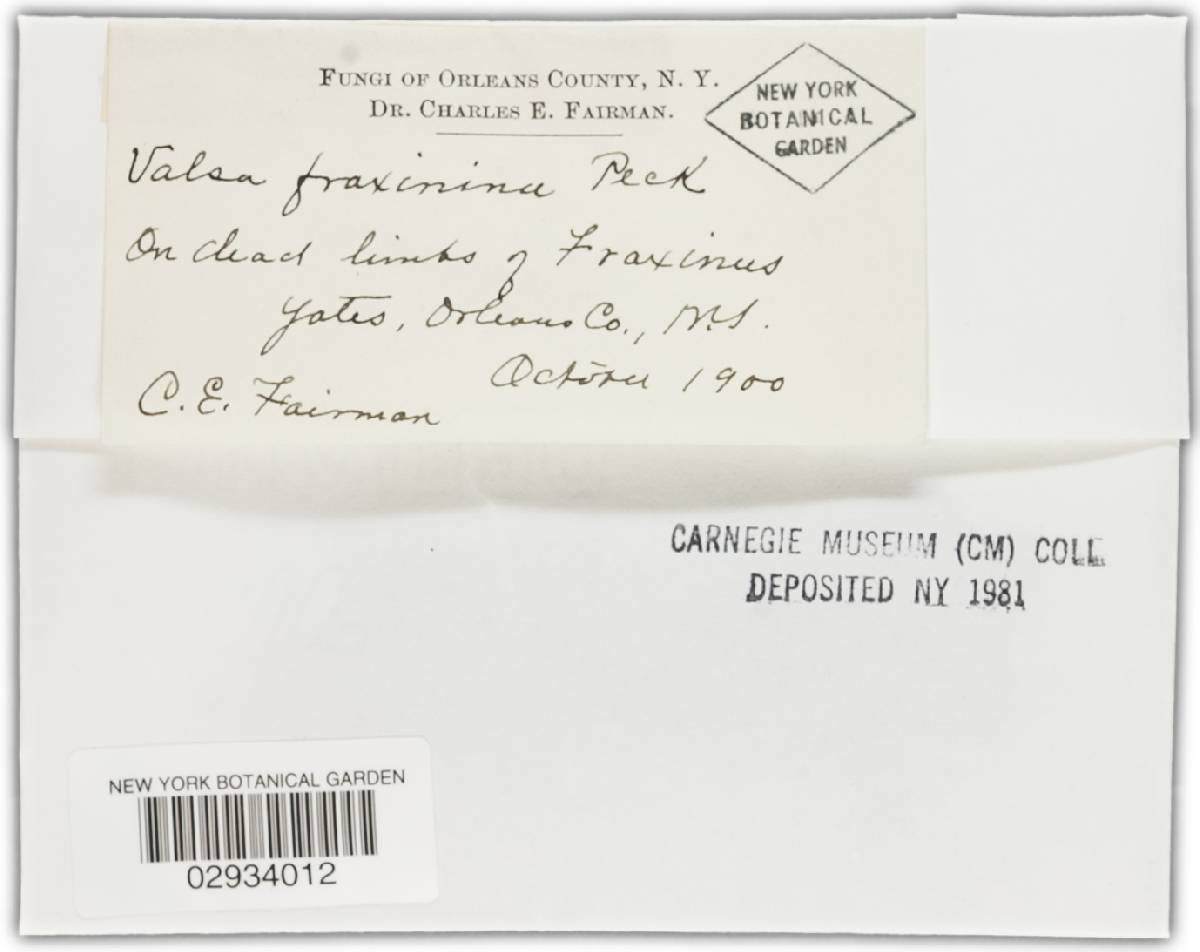 FUNGI OF ORLEANS COUNTY, N. Y.
DR. CHARLES E. FAIRMAN.
NEW YORK
BOTANICAL
GARDEN
Valsa fraxinina Peck
On dead limbs of Fraxinus
Yates, Orleans Co., N.Y.
October 1900
C. E. Fairman
CARNEGIE MUSEUM (CM) COLL.
DEPOSITED NY 1981
NEW YORK BOTANICAL GARDEN
02934012